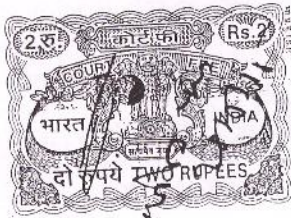 2 रु. कोर्ट फ़ी Rs.2
COURT FEE
भारत INDIA
सत्यमेव जयते
दो रुपये TWO RUPEES